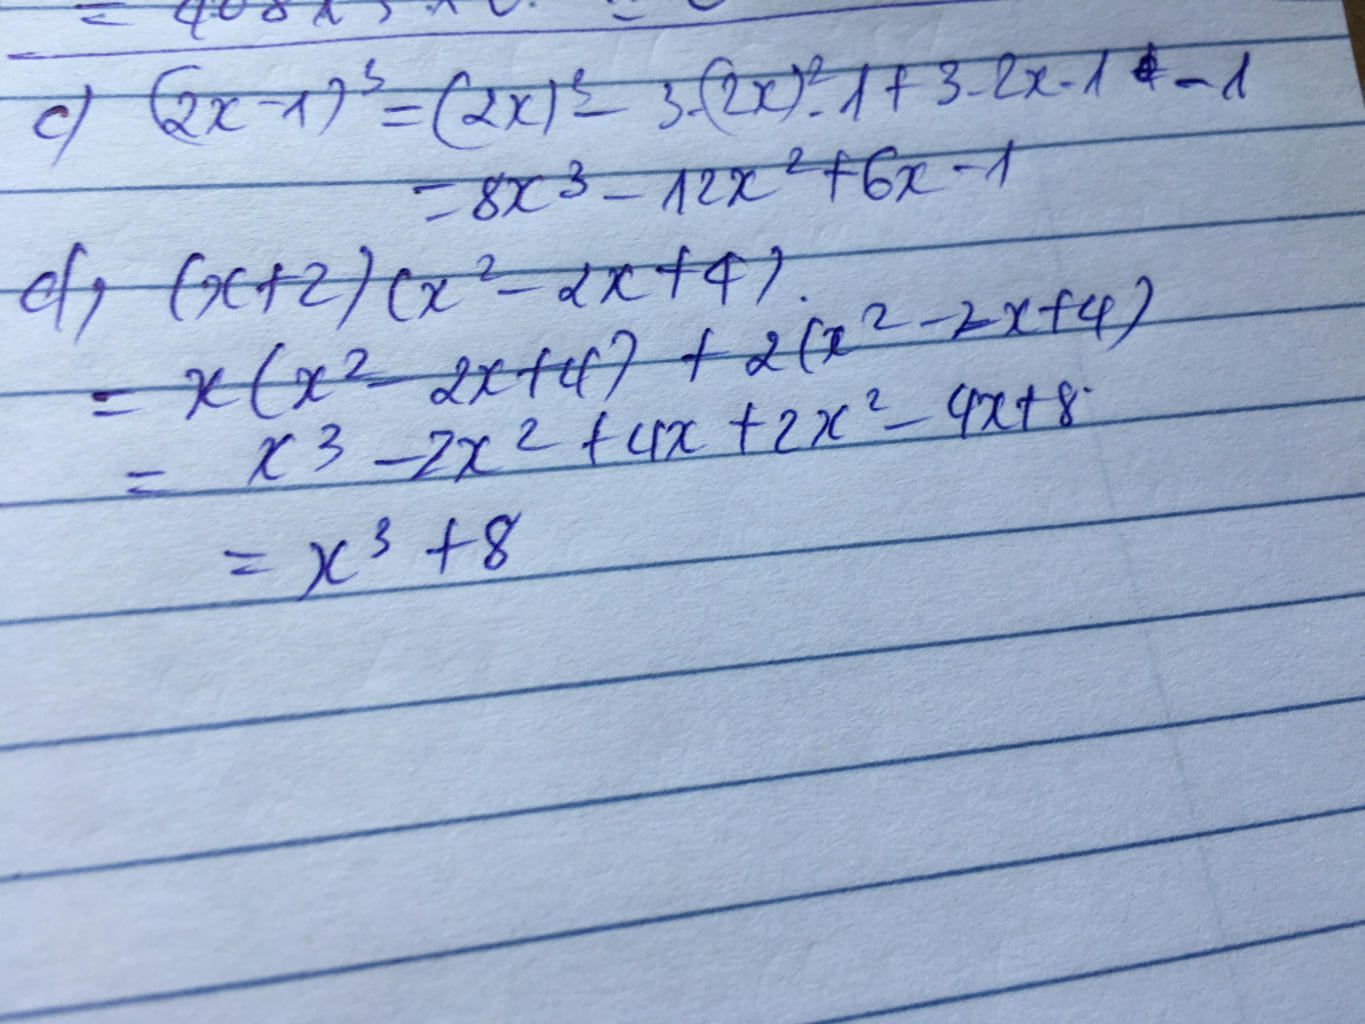 c) (2x-1)³ = (2x)³ - 3.(2x)².1 + 3.2x.1 - 1
= 8x³ - 12x² + 6x - 1
d, (x+2)(x² - 2x + 4).
= x(x² - 2x + 4) + 2(x² - 2x + 4)
= x³ - 2x² + 4x + 2x² - 4x + 8
= x³ + 8